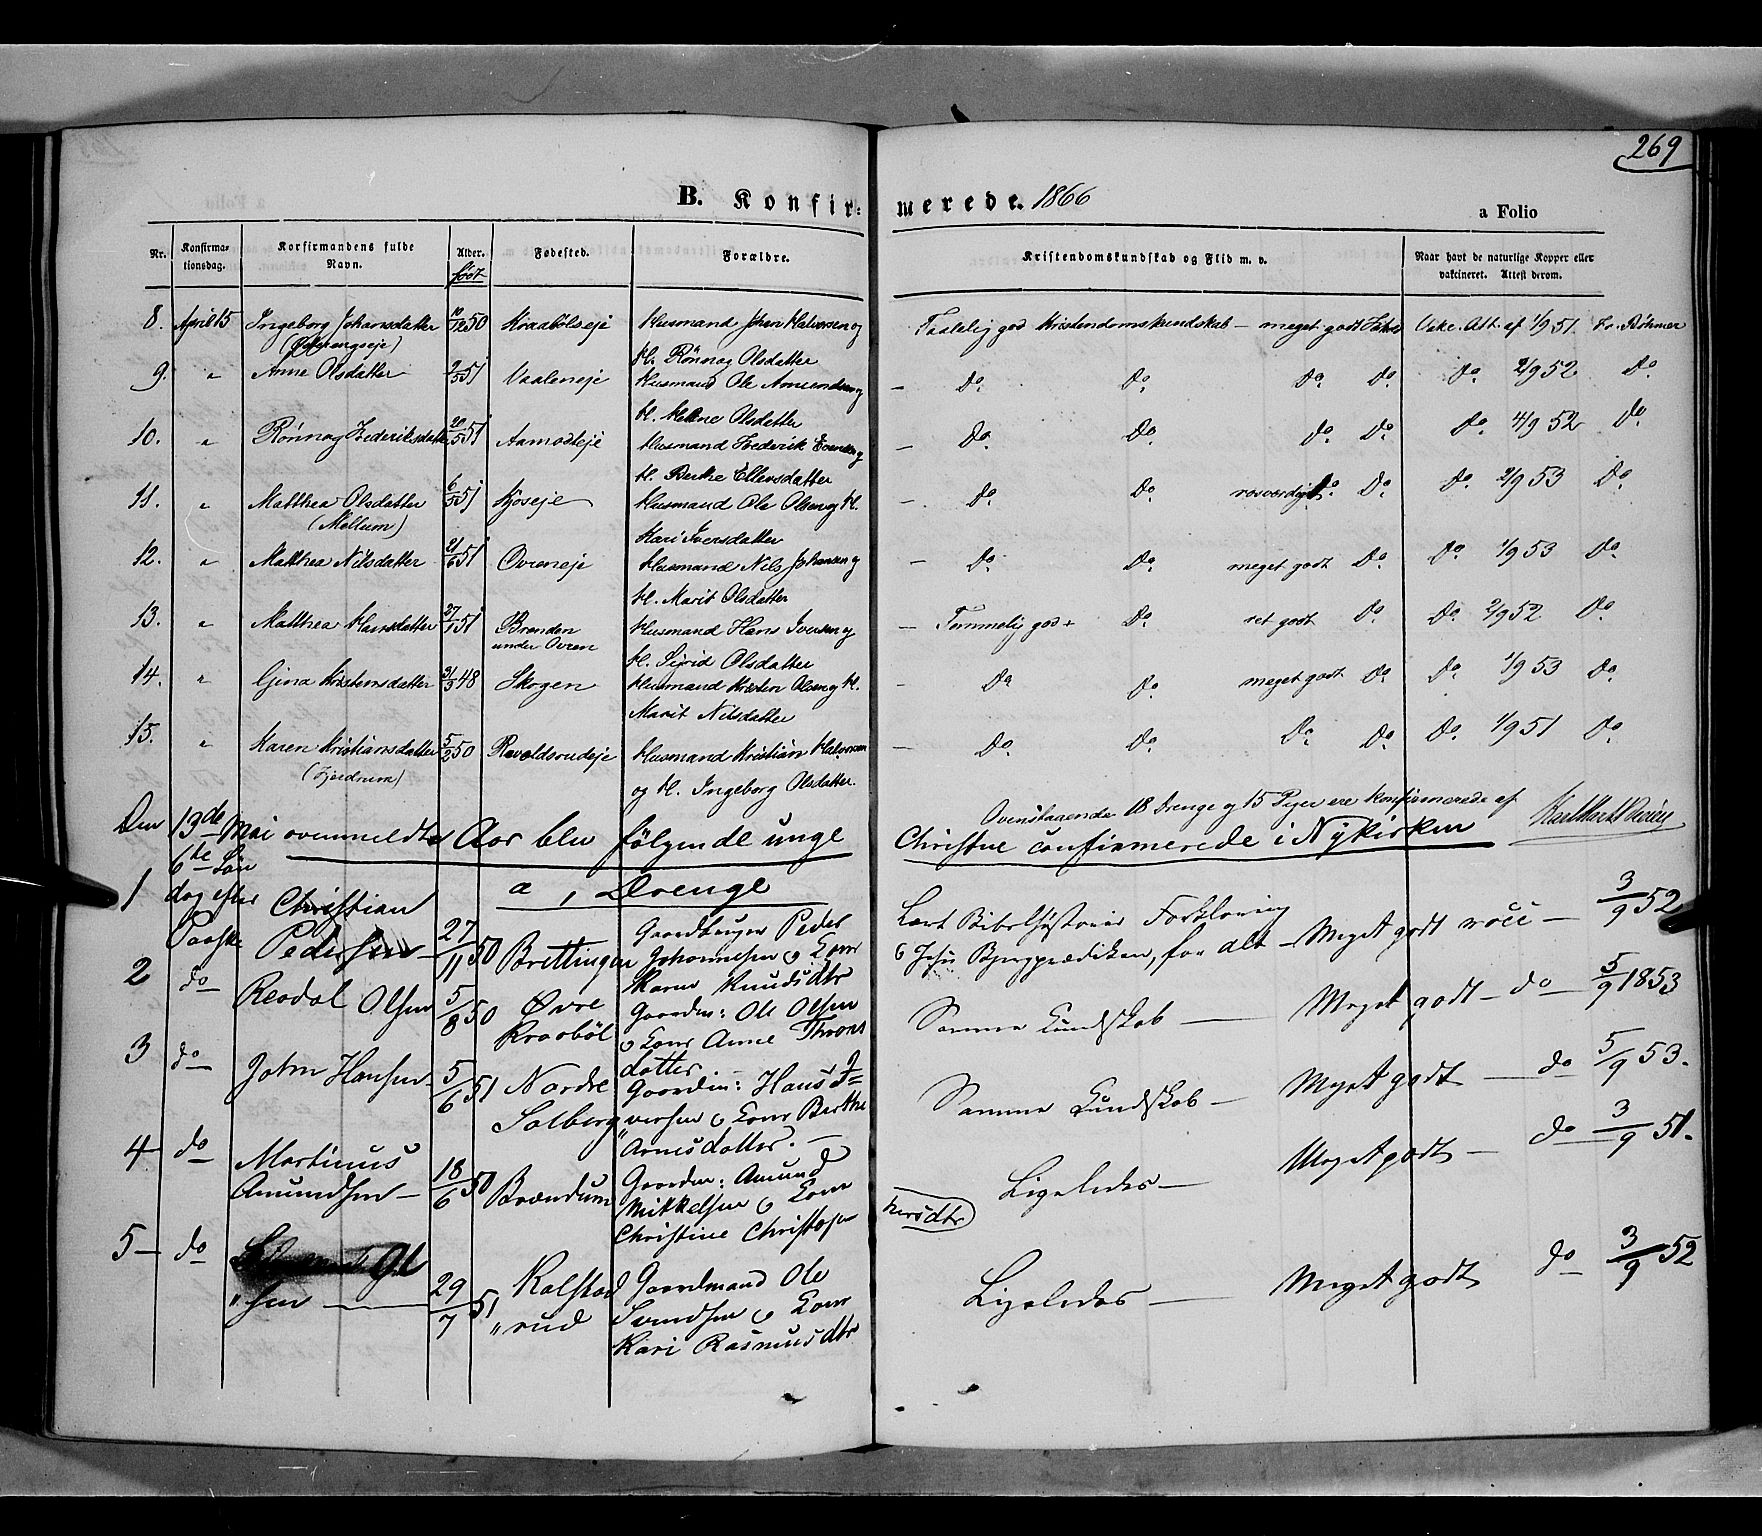 269
B. Konfirmerede. 1866
a Folio
Nr. Konfirmationsdag. Konfirmandens fulde Navn. Alder. født Fødested. Forældre. Kristendomskundskab og Flid m. v. Naar havt de naturlige Kopper eller vakcineret. Attest derom.
8. April 15 Ingeborg Johansdatter 10/12 50 Kraabölseje Husmand Johan Halvorsen og Taalelig god Kristendomskundskab – meget godt Vakc. Att. af 1/9 51. Böhmer
H. Rönnog Olsdatter
9. " Anne Olsdatter 2/5 51 Vaaleneje Husmand Ole Amundsen og – Do. Do. Do. Do. Do. 2/9 52 Do.
H. Helene Olsdatter
10. " Rönnog Frederiksdatter 20/5 51 Aamodteje Husmand Frederik Evensen og – Do. Do. Do. Do. Do. 4/9 52 Do.
H. Berthe Ellensdatter
11. " Matthea Olsdatter 6/5 51 Kjoseje Husmand Ole Olsen og H. – Do. Do. rosværdigt Do. Do. 2/9 53 Do.
(Mellum)
Kari Iversdatter
12. " Matthea Nilsdatter 21/6 51 Ovreneje Husmand Nils Johansen og – Do. Do. meget godt Do. Do. 1/9 53 Do.
H. Marit Olsdatter
13. " Matthea Hansdatter 27/1 51 Brænden Husmand Hans Iversen og – Temmelig god Do. ret godt Do. Do. 2/9 52 Do.
under Ovren
H. Sigrid Olsdatter
14. " Gina Kristensdatter 31/3 48 Skogen Husmand Kristen Olsen og H. – Do. Do. meget godt Do. Do. 1/9 53 Do.
Marit Nilsdatter
15. " Karen Kristiansdatter 5/2 50 Revoldsrudeje Husmand Kristian Halvorsen – Do. Do. Do. Do. Do. 1/9 51 Do.
(Fjerdrum)
og H. Ingeborg Olsdatter.
Ovenstaaende 18 Drenge og 15 Piger ere konfirmerede af
Den 13de Mai ovenmeldte Aar blev fölgende unge Christne confirmerede i Nykirken
6te Søn
a, Drenge
1 dag efter Christian Gaardbruger Peder Lært Bibelhistorie Forklaring
Paaske Pedersen – 27/11 50 Brettingen Johannesen & Kone 6 Jesu Bjergprædiken, for alt – Meget godt – 3/9 52
Karen Knudsdtr
2 do Reodol Olsen 5/8 50 Øvre Gaardm: Ole Olsen Samme Kundskab — Meget godt – do 5/9 1853
Kraaböl & Kone Anne Throns
datter. –
3 do John Hansen 5/6 51 Nordre Gaardm: Hans I= Samme Kundskab – Meget godt — do 5/9 53.
Solberg versen & Kone Berthe
Arnesdatter. –
4 do Martinus 18/6 50 Brændum Gaardm: Amund Ligeledes — Meget godt – do 3/9 51.
Amundsen – Mikkelsen & Kone
Christine Christop
hersdtr
5 – do Ol 29/7 51 Kalstad Gaardmand Ole Ligeledes — Meget godt do 3/9 52
"sen — "rud Svendsen & Kone
Kari Rasmusdtr